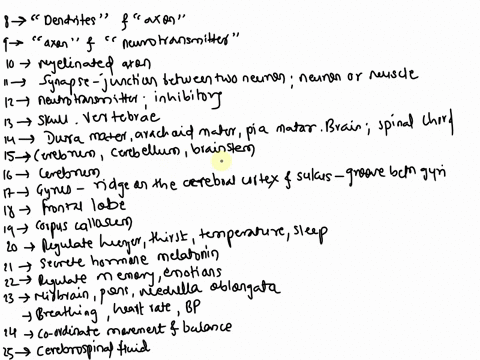 8→ "Dendrites" & "axon"
9→ "axon" & "neurotransmitter"
10 → myelinated axon
11 → Synapse - junction between two neuron; neuron or muscle
12 → neurotransmitter; inhibitory
13 → Skull. vertebrae
14 → Dura mater, arachaid mater, pia matar. Brain; spinal chord
15→ Cerebrum, Cerebellum, brainstem
16 → Cerebrum
17 → Gyrus - ridge on the cerebral cortex & sulcus - groove betn gyri
18 → Frontal lobe
19 → Corpus callosum
20 → Regulate hunger, thirst, temperature, sleep
21 → Secrete hormone melatonin
22 → Regulate memory, emotions
23 → Midbrain, pons, medulla oblongata
→ Breathing, heart rate, BP
24 → Co-ordinate movement & balance
25 → Cerebrospinal fluid